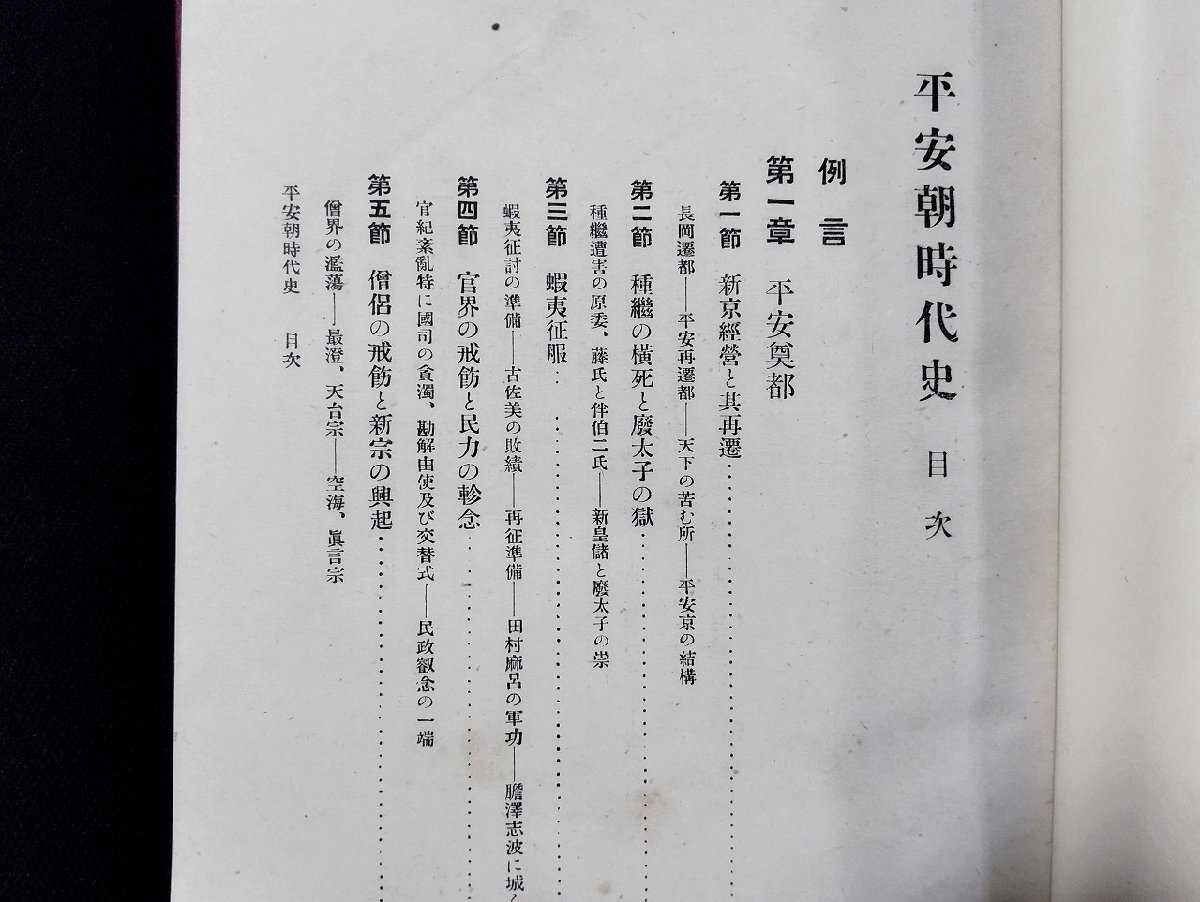 平安朝時代史 目次
例言
第一章 平安奠都
第一節 新京經營と其再遷
長岡遷都――平安再遷都――天下の苦む所――平安京の結構
第二節 種繼の橫死と廢太子の獄
種繼遭害の原委、藤氏と伴伯二氏――新皇儲と廢太子の祟
第三節 蝦夷征服
蝦夷征討の準備――古佐美の敗績――再征準備――田村麻呂の軍功――膽澤志波に城く
第四節 官界の戒飭と民力の軫念
官紀紊亂特に國司の貪濁、勘解由使及び交替式――民政叡念の一端
第五節 僧侶の戒飭と新宗の興起
僧界の濫蕩――最澄、天台宗――空海、眞言宗
平安朝時代史 目次